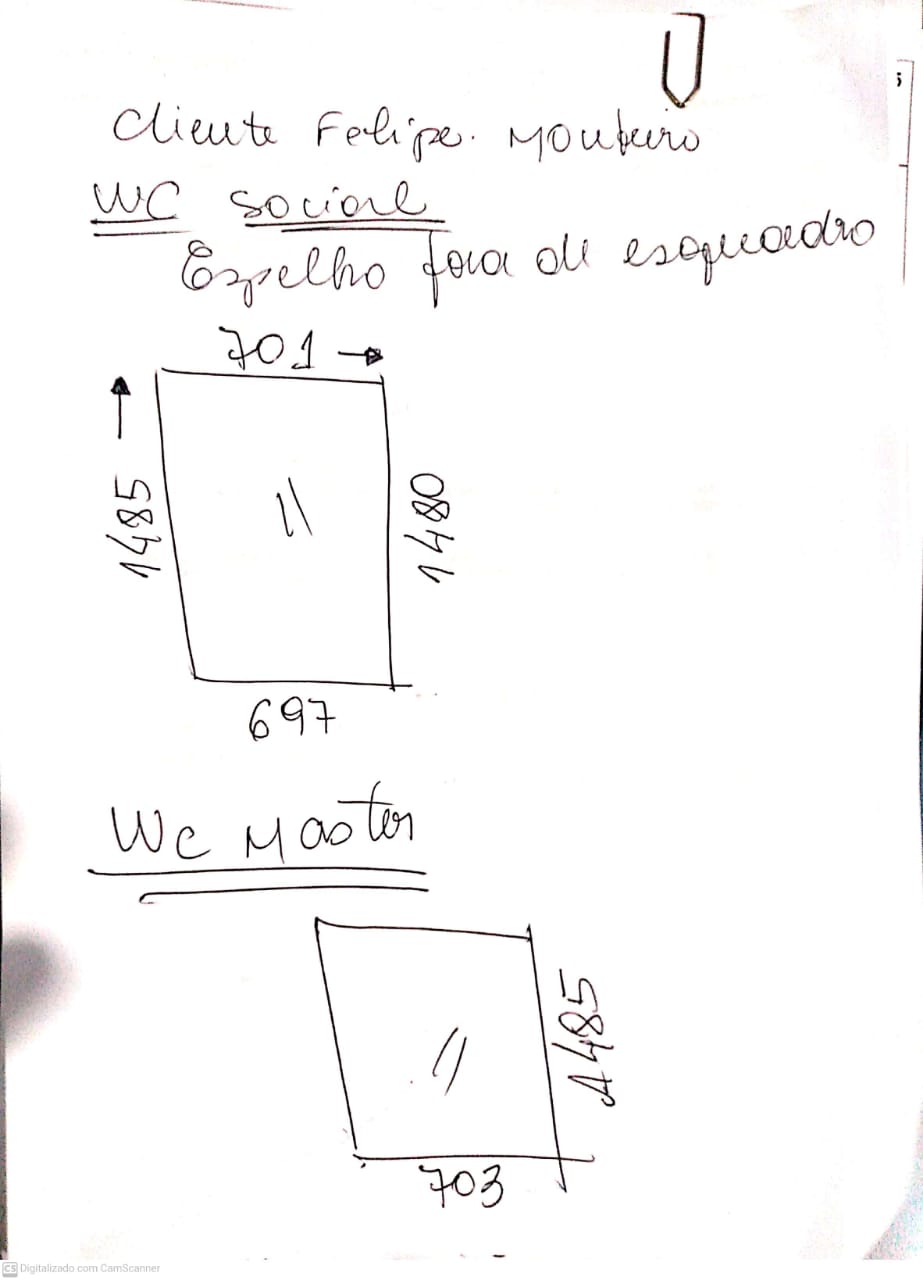 Cliente Felipe. Monteiro
WC social
Espelho fora de esquadro
701
1485
1480
697
WC Master
1485
703
CS Digitalizado com CamScanner